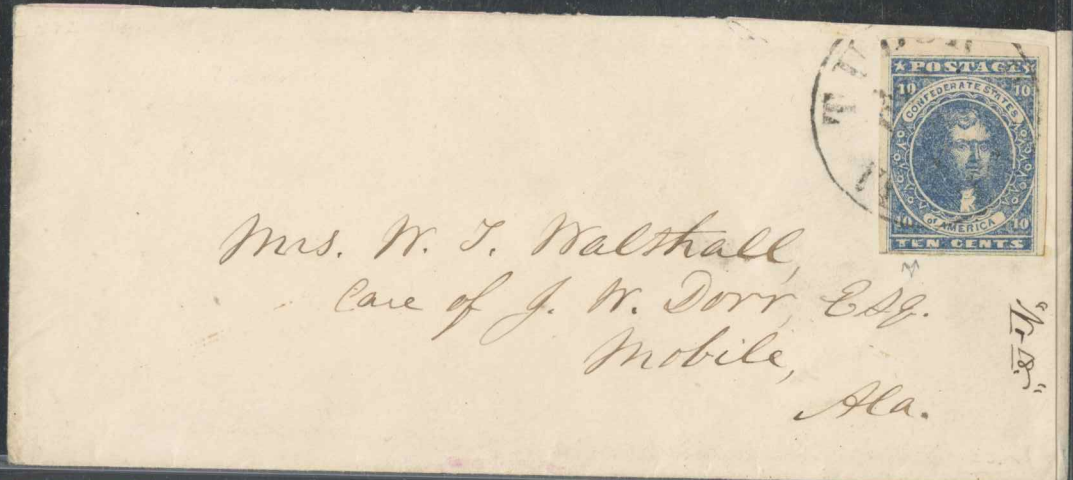 POSTAGE
10 10
CONFEDERATE STATES
of AMERICA
10 10
TEN CENTS
Mrs. W. T. Walshall,
Care of J. W. Dorr, Esq.
Mobile,
Ala.